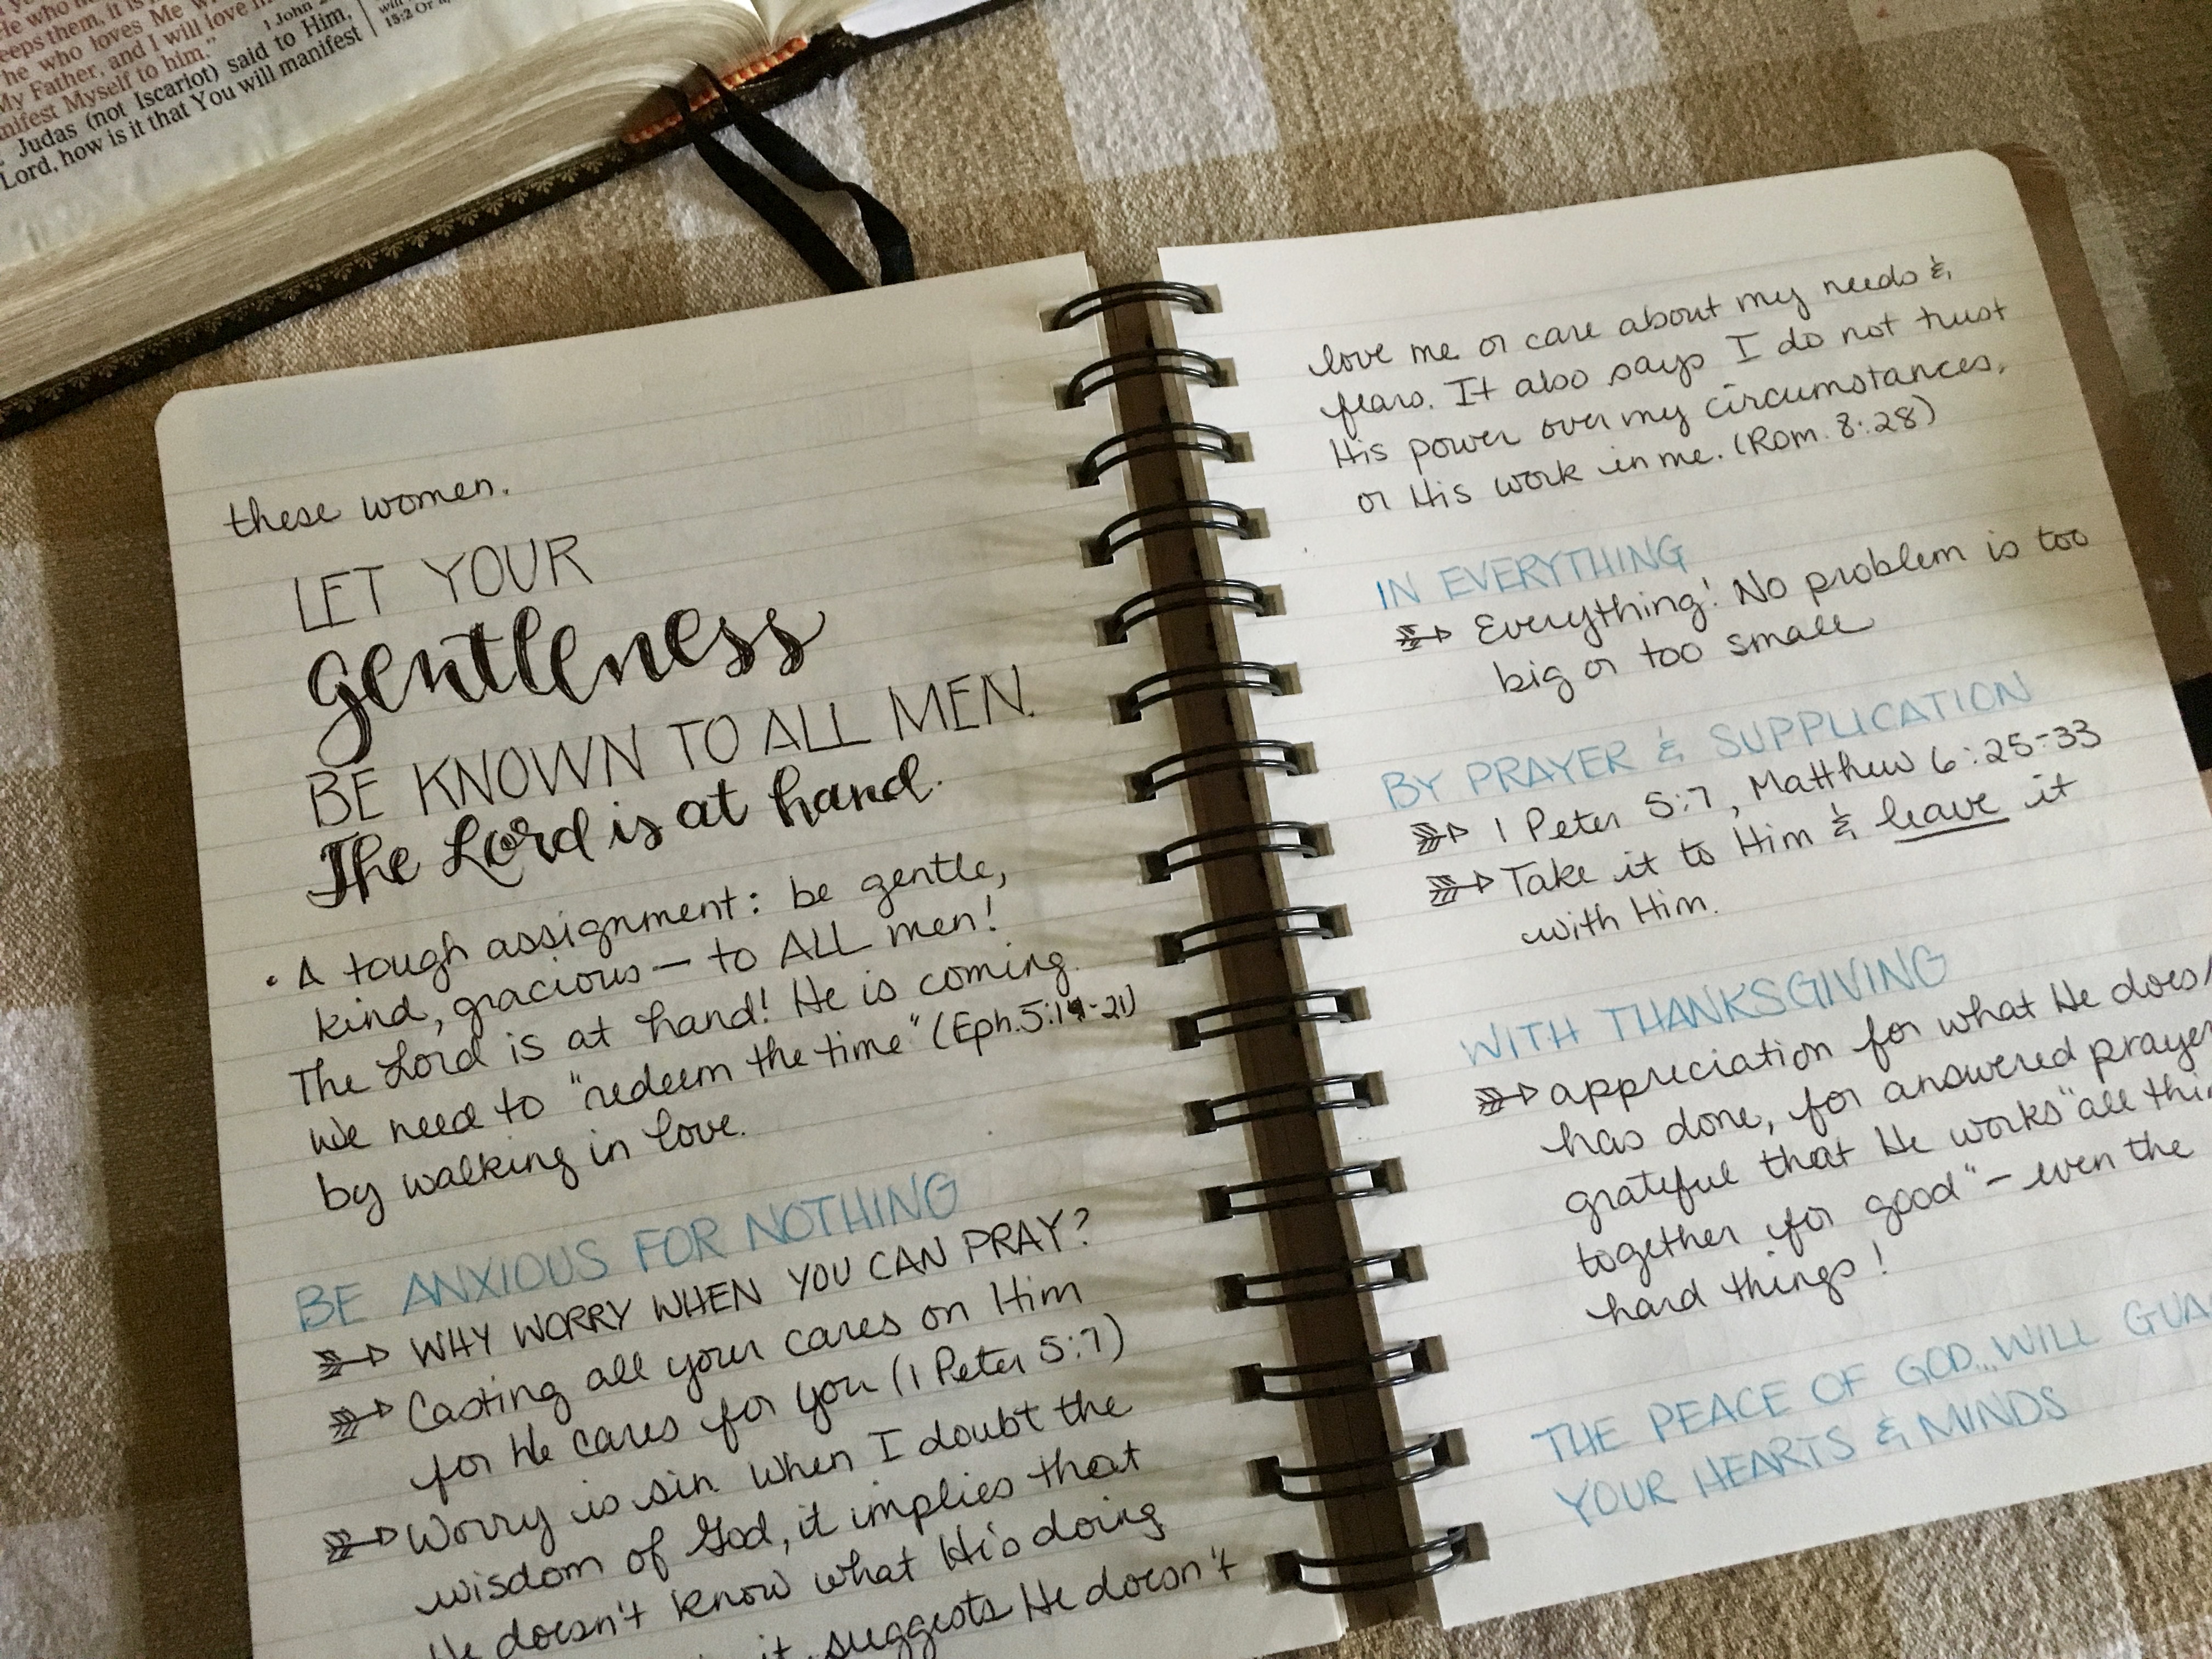 He who
keeps them, it is
he who loves Me
My Father, and I will love
manifest Myself to him."
1 John
Judas (not Iscariot) said to Him,
Lord, how is it that You will manifest
will
15:2 Or
these women.
LET YOUR
gentleness
BE KNOWN TO ALL MEN.
The Lord is at hand.
• A tough assignment: be gentle,
kind, gracious — to ALL men!
The Lord is at hand! He is coming.
We need to "redeem the time" (Eph. 5:14-21)
by walking in love.
BE ANXIOUS FOR NOTHING
WHY WORRY WHEN YOU CAN PRAY?
Casting all your cares on Him
for He cares for you (1 Peter 5:7)
Worry is sin when I doubt the
wisdom of God, it implies that
He doesn't know what He's doing
it suggests He doesn't
love me or care about my needs &
fears. It also says I do not trust
His power over my circumstances,
or His work in me. (Rom. 8:28)
IN EVERYTHING
Everything! No problem is too
big or too small
BY PRAYER & SUPPLICATION
1 Peter 5:7, Matthew 6:25-33
Take it to Him & leave it
with Him.
WITH THANKSGIVING
appreciation for what He does/
has done, for answered prayer
grateful that He works "all thi
together for good" - even the
hard things!
THE PEACE OF GOD...WILL GUA
YOUR HEARTS & MINDS